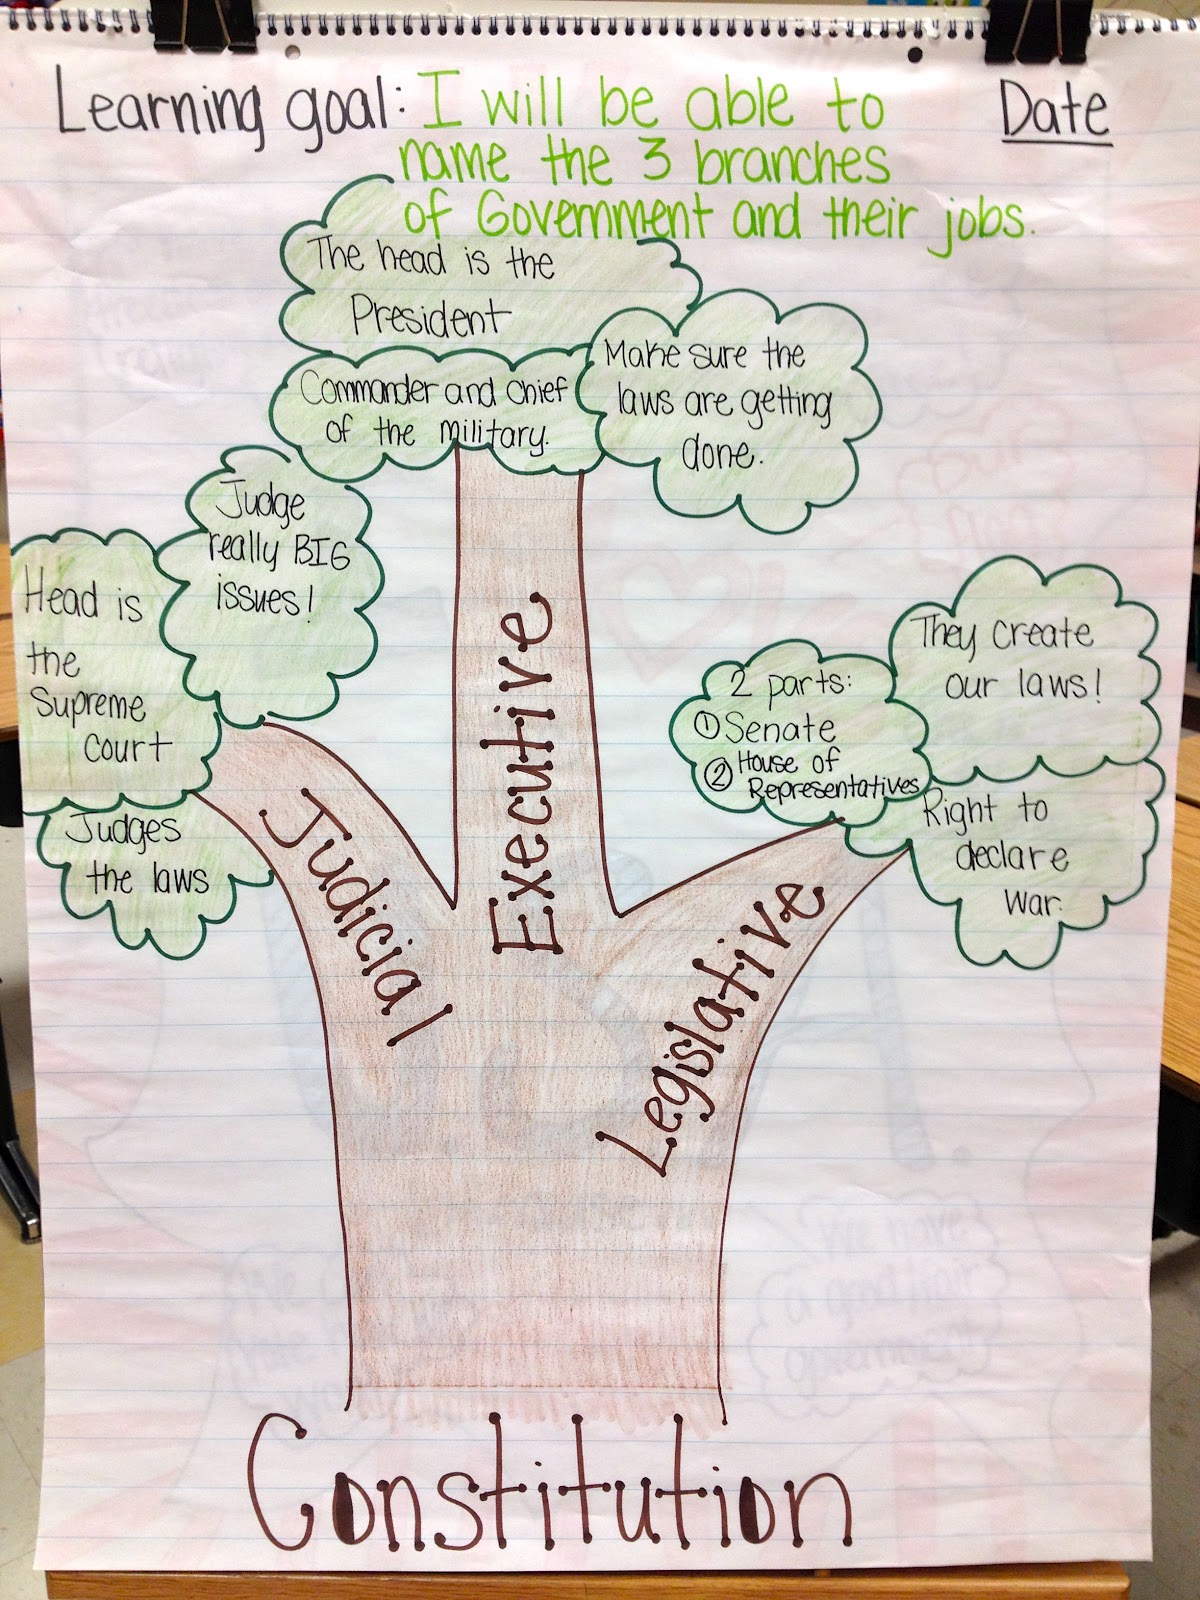 Learning goal: I will be able to
Date
name the 3 branches
of Government and their jobs.
The head is the
President
Commander and Chief
of the military.
Make sure the
laws are getting
done.
Judge
really BIG
issues!
Head is
the
Supreme
Court
Judges
the laws
They create
our laws!
2 parts:
① Senate
② House of
Representatives
Right to
declare
war.
Judicial
Executive
Legislative
We have
a good/fair
government
Constitution